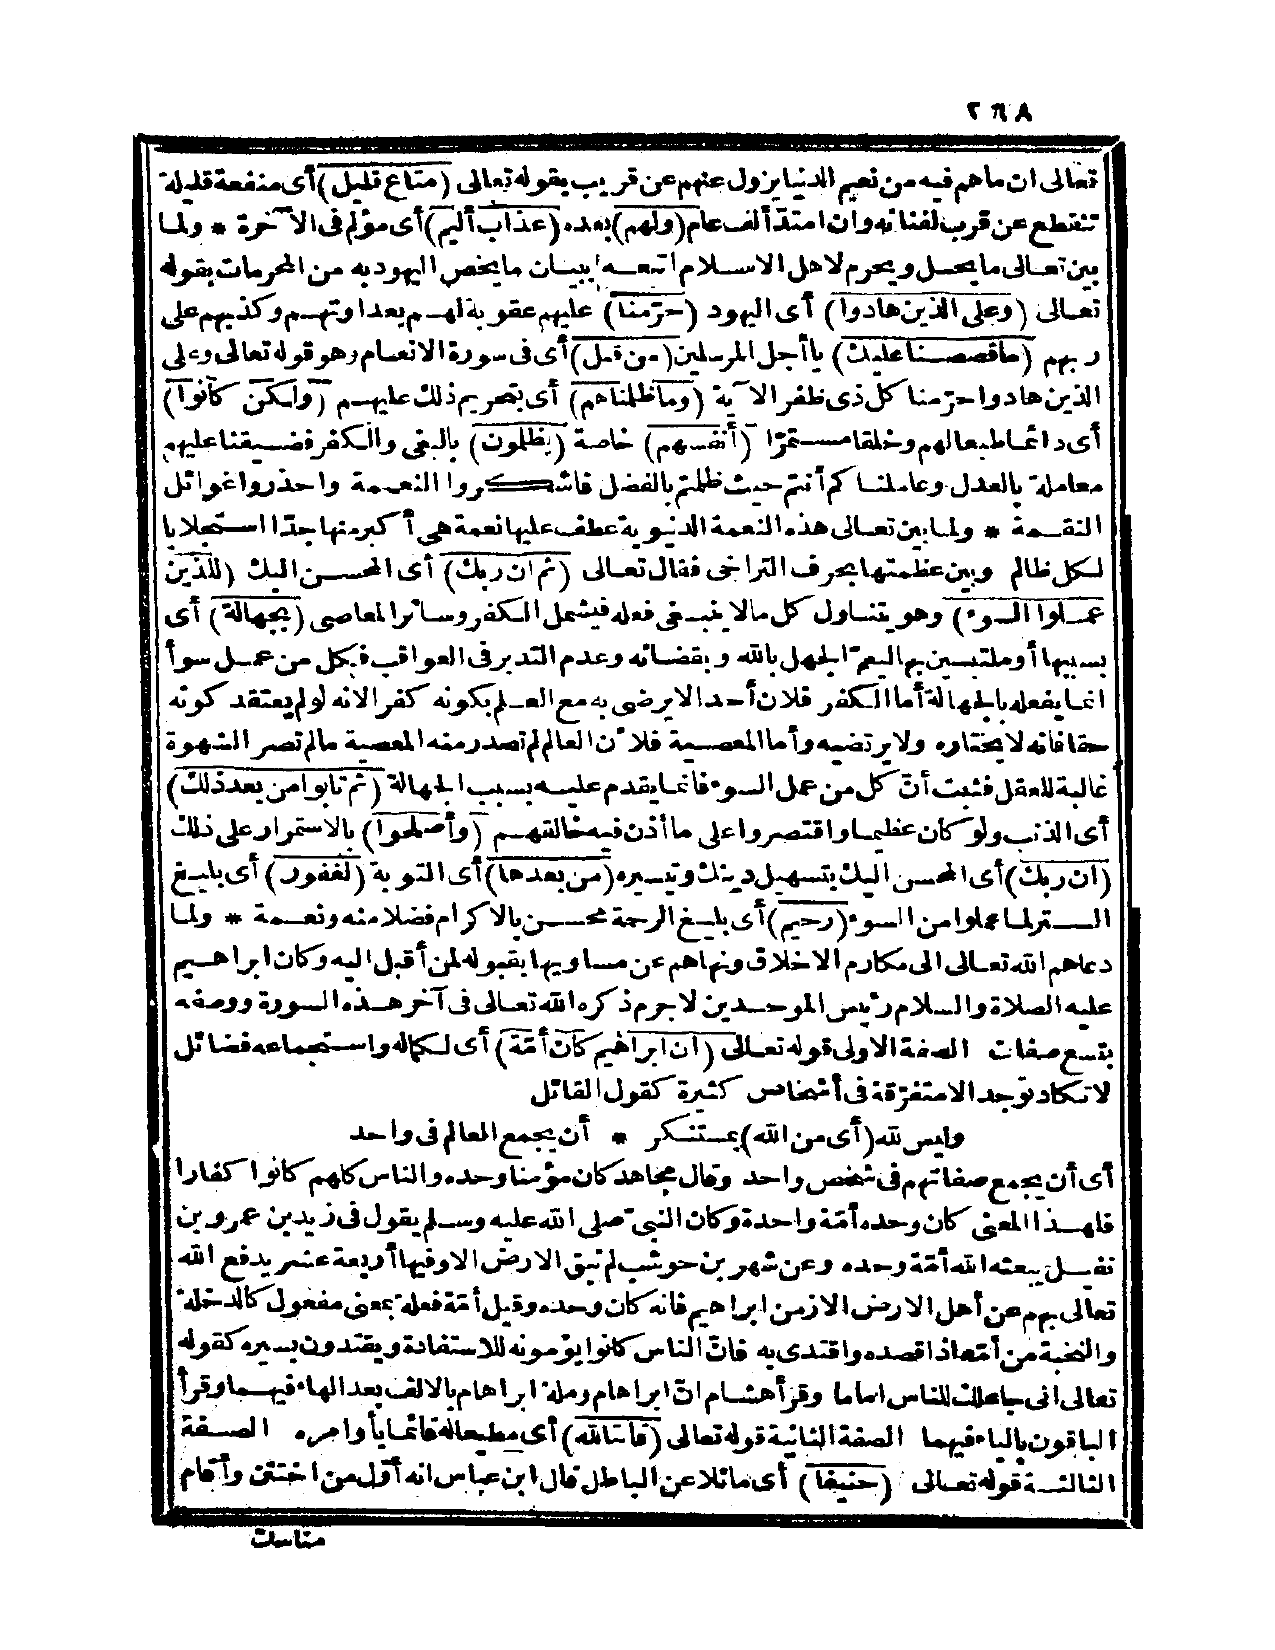 ٢٦٨
تعالى ان ما هم فيه من نعيم الدنيا يزول عنهم عن قريب بقوله تعالى (متاع قليل) أى منفعة قليلة
تنقطع عن قرب لفنائه وان امتد ألف عام (ولهم) بعده (عذاب أليم) أى مؤلم فى الآخرة * ولما
بين تعالى ما يحل ويحرم لاهل الاسلام اتبعه ببيان ما يخص اليهود به من المحرمات بقوله
تعالى (وعلى الذين هادوا) أى اليهود (حرّمنا) عليهم عقوبة لهم بعداوتهم وكذبهم على
ربهم (ما قصصنا عليك) يا أجل المرسلين (من قبل) أى فى سورة الانعام وهو قوله تعالى وعلى
الذين هادوا حرّمنا كل ذى ظفر الآية (وما ظلمناهم) أى بتحريم ذلك عليهم (ولكن كانوا)
أى دائما طبعا لهم وخلقا مستمرّا (أنفسهم) خاصة (يظلمون) بالبغى والكفر فضيقنا عليهم
معاملة بالعدل وعاملناكم أنتم حيث ظلمتم بالفضل فاشكروا النعمة واحذروا غوائل
النقمة * ولما بين تعالى هذه النعمة الدنيوية عطف عليها نعمة هى أكبر منها جدّا استجلابا
لكل ظالم وبين عظمتها بحرف التراخى فقال تعالى (ثم ان ربك) أى المحسن اليك (للذين
عملوا السوء) وهو يتناول كل ما لا ينبغى فعله فيشمل الكفر وسائر المعاصى (بجهالة) أى
بسببها أو ملتبسين بها ليعمّ الجهل بالله وبقضائه وعدم التدبر فى العواقب فكل من عمل سوأ
انما يفعله بالجهالة أما الكفر فلان أحدا لا يرضى به مع العلم بكونه كفرا لانه لو لم يعتقد كونه
حقا فانه لا يختاره ولا يرتضيه وأما المعصية فلأن العالم لم تصدر منه المعصية ما لم تصر الشهوة
غالبة للعقل فثبت أنّ كل من عمل السوء فانما يقدم عليه بسبب الجهالة (ثم تابوا من بعد ذلك)
أى الذنب ولو كان عظيما واقتصروا على ما أذن فيه خالقهم (وأصلحوا) بالاستمرار على ذلك
(ان ربك) أى المحسن اليك بتسهيل دينك وتيسيره (من بعدها) أى التوبة (لغفور) أى بليغ
الستر لما عملوا من السوء (رحيم) أى بليغ الرحمة محسن بالاكرام فضلا منه ونعمة * ولما
دعاهم الله تعالى الى مكارم الاخلاق ونهاهم عن مساويها بقبوله لمن أقبل اليه وكان ابراهيم
عليه الصلاة والسلام رئيس الموحدين لا جرم ذكره الله تعالى فى آخر هذه السورة ووصفه
بتسع صفات الصفة الاولى قوله تعالى (ان ابراهيم كان أمّة) أى لكماله واستجماعه فضائل
لا تكاد توجد الا متفرّقة فى أشخاص كثيرة كقول القائل
وليس لله (أى من الله) بمستنكر * أن يجمع العالم فى واحد
أى أن يجمع صفاتهم فى شخص واحد وقال مجاهد كان مؤمنا وحده والناس كلهم كانوا كفارا
فلهذا المعنى كان وحده أمّة واحدة وكان النبىّ صلى الله عليه وسلم يقول فى زيد بن عمرو بن
نفيل يبعثه الله أمّة وحده وعن شهر بن حوشب لم تبق الارض الا وفيها أربعة عشر يدفع الله
تعالى بهم عن أهل الارض الا زمن ابراهيم فانه كان وحده وقيل أمّة فعلة بمعنى مفعول كالدخلة
والنخبة من أمّه اذا قصده واقتدى به فانّ الناس كانوا يؤمونه للاستفادة ويقتدون بسيره كقوله
تعالى انى جاعلك للناس اماما وقرأ هشام انّ ابراهام وملة ابراهام بالالف بعد الهاء فيهما وقرأ
الباقون بالياء فيهما الصفة الثانية قوله تعالى (قانتا لله) أى مطيعا له قائما بأوامره الصفة
الثالثة قوله تعالى (حنيفا) أى مائلا عن الباطل قال ابن عباس انه أوّل من اختتن وأقام
مناسك